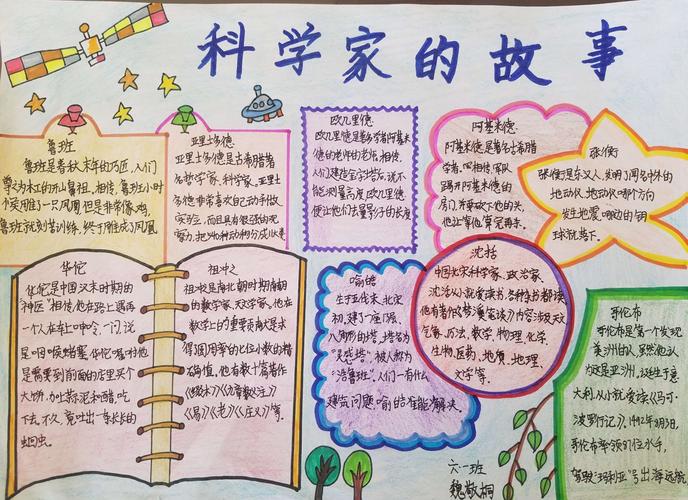 科学家的故事
鲁班
鲁班是春秋末年的巧匠,人们
尊为木工的开山鼻祖,相传,鲁班小时
个奂雕了一只凤凰但是非常像鸡,
鲁班就刻苦训练,终于雕成了凤凰
亚里士多德
亚里士多德是古希腊著
名哲学家、科学家。亚里士
多德非常喜欢自己动手做
实验,而且有很强的观
察力,把540种动物分成
欧几里德
欧几里德是数学者阿基米
德的老师的老师,相传,
人们建造金字塔,说不
能测量高度,欧几里德
便让他们去量影子的长度
阿基米德
阿基米德是著名古希腊
学者,四相传,罗队
踢开阿基米德的
房门,并要砍下他的头,
他让等他算完再杀。
张衡
张衡是东汉人,发明了闻名中外的
地动仪,地动仪哪个方向
发生地震,哪边的铜
球就落下。
华佗
华佗是中国汉末时期的
“神医”相传,他在路上遇
一个人在车上呻吟、一问,说
是咽喉堵塞,华佗嘱咐他
是需要到前面的店里买个
大饼,加上蒜泥和醋,吃
下去,不久,竟吐出一条长长的
蛔虫。
祖冲之
祖冲之是南北朝时期南朝
的数学家、天文学家,他在
数学上的重要贡献是求
得圆周率的七位小数的精
确值,他有数十篇著作
《缀术》《九章算术注》
《易》《老》《庄义》等。
喻皓
生于五代末,北宋
初,建了一座八层、
八角形的塔,塔名为
“灵感塔”,被人敬为
“活鲁班”。人们一有什么
建筑问题,喻皓准能解决。
沈括
中国北宋科学家、政治家、
沈括从小就爱读书,各种杂书都读,
他有著作《梦溪笔谈》内容涉及天文
气象、历法、数学、物理、化学
生物、医药、地质、地理、
文学等。
哥伦布
哥伦布是第一个发现
美洲的人,虽然他认
为这是亚洲,这些于意
大利,从小就爱读《马可·
波罗行记》,1492年8月3日,
哥伦布率领87位水手,
驾驶“玛利亚”号出海远航
六一班
魏敬桐